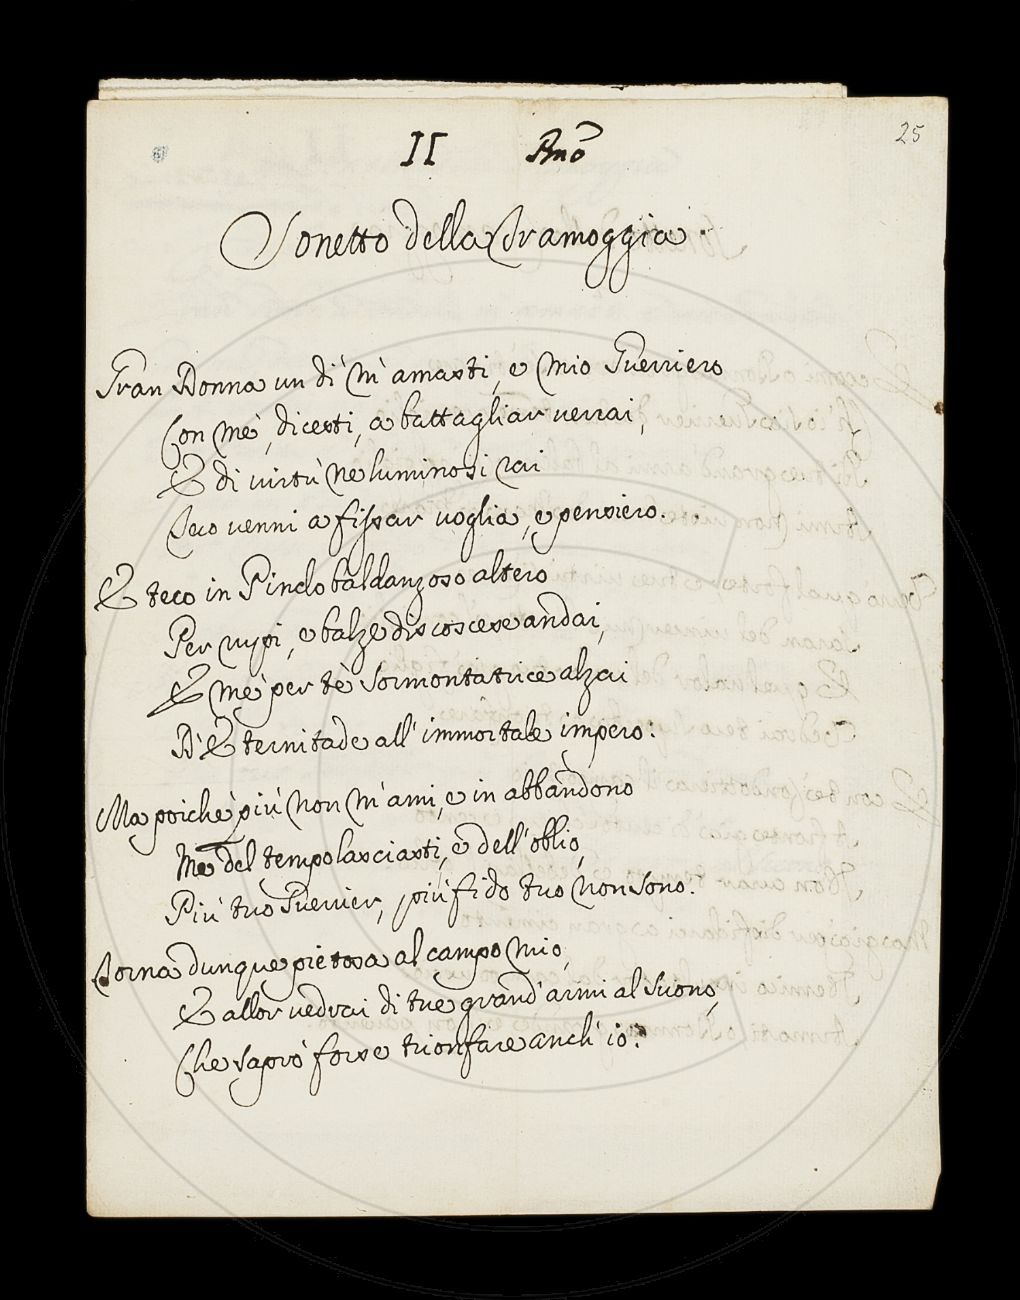 25
II Anõ
Sonetto della Tramoggia.
Gran Donna un dì m'amasti, e mio Guerriero
Con mè, dicesti, a battagliar verrai,
E di virtù ne luminosi rai
Teco venni a fissar voglia, e pensiero.
E teco in Pindo baldanzoso altero
Per rupi, e balze discoscese andai,
E me per tè sormontatrice alzai
D'Eternitade all'immortale impero:
Ma poichè più non m'ami, e in abbandono
Me del tempo lasciasti, e dell'oblio,
Più tuo Guerrier, più fido tuo non sono.
Torna dunque pietosa al campo mio,
E allor vedrai di tue grand'armi al suono,
Che saprò forse trionfare anch'io.